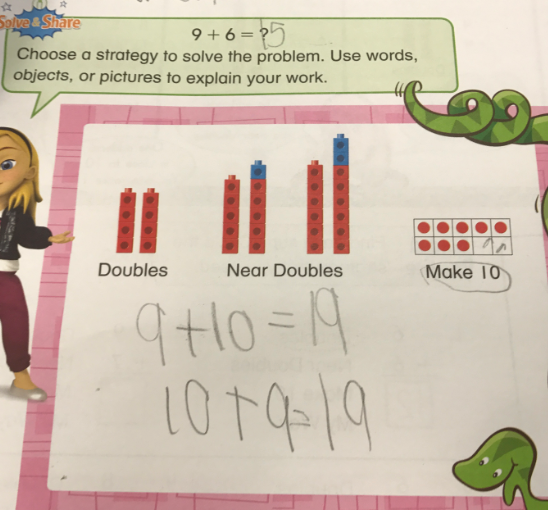 Solve & Share
9 + 6 = ? 15
Choose a strategy to solve the problem. Use words,
objects, or pictures to explain your work.
Doubles
Near Doubles
Make 10
9+10=19
10+9=19